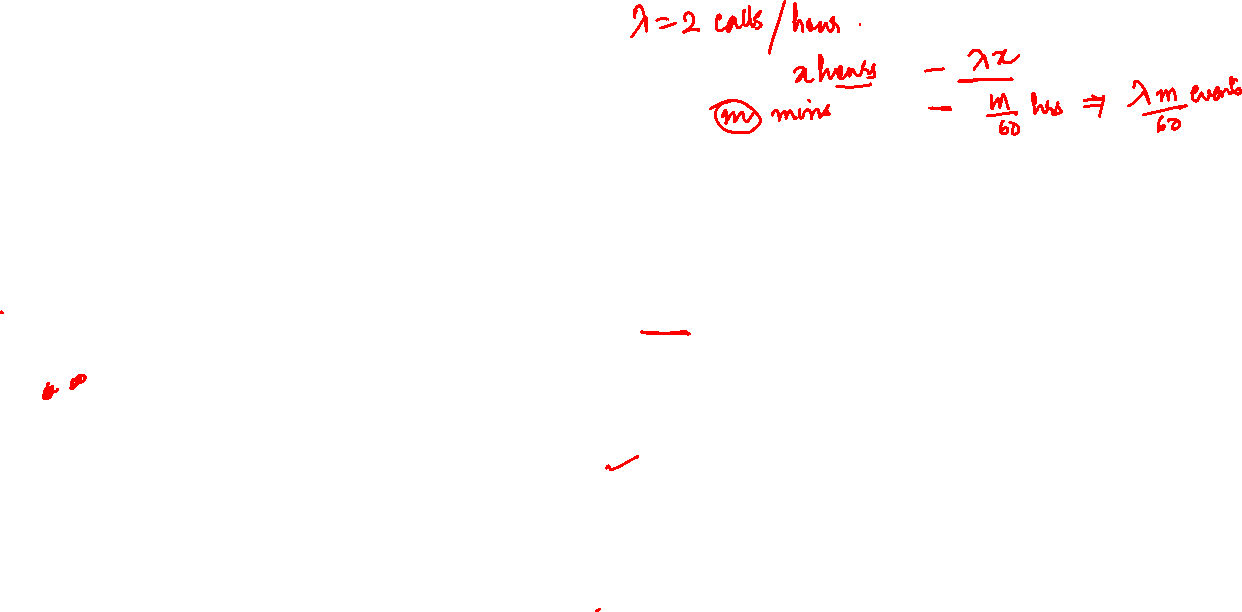 λ=2 calls/hour.
x hours - λx
m mins - m/60 hrs ⇒ λm/60 events